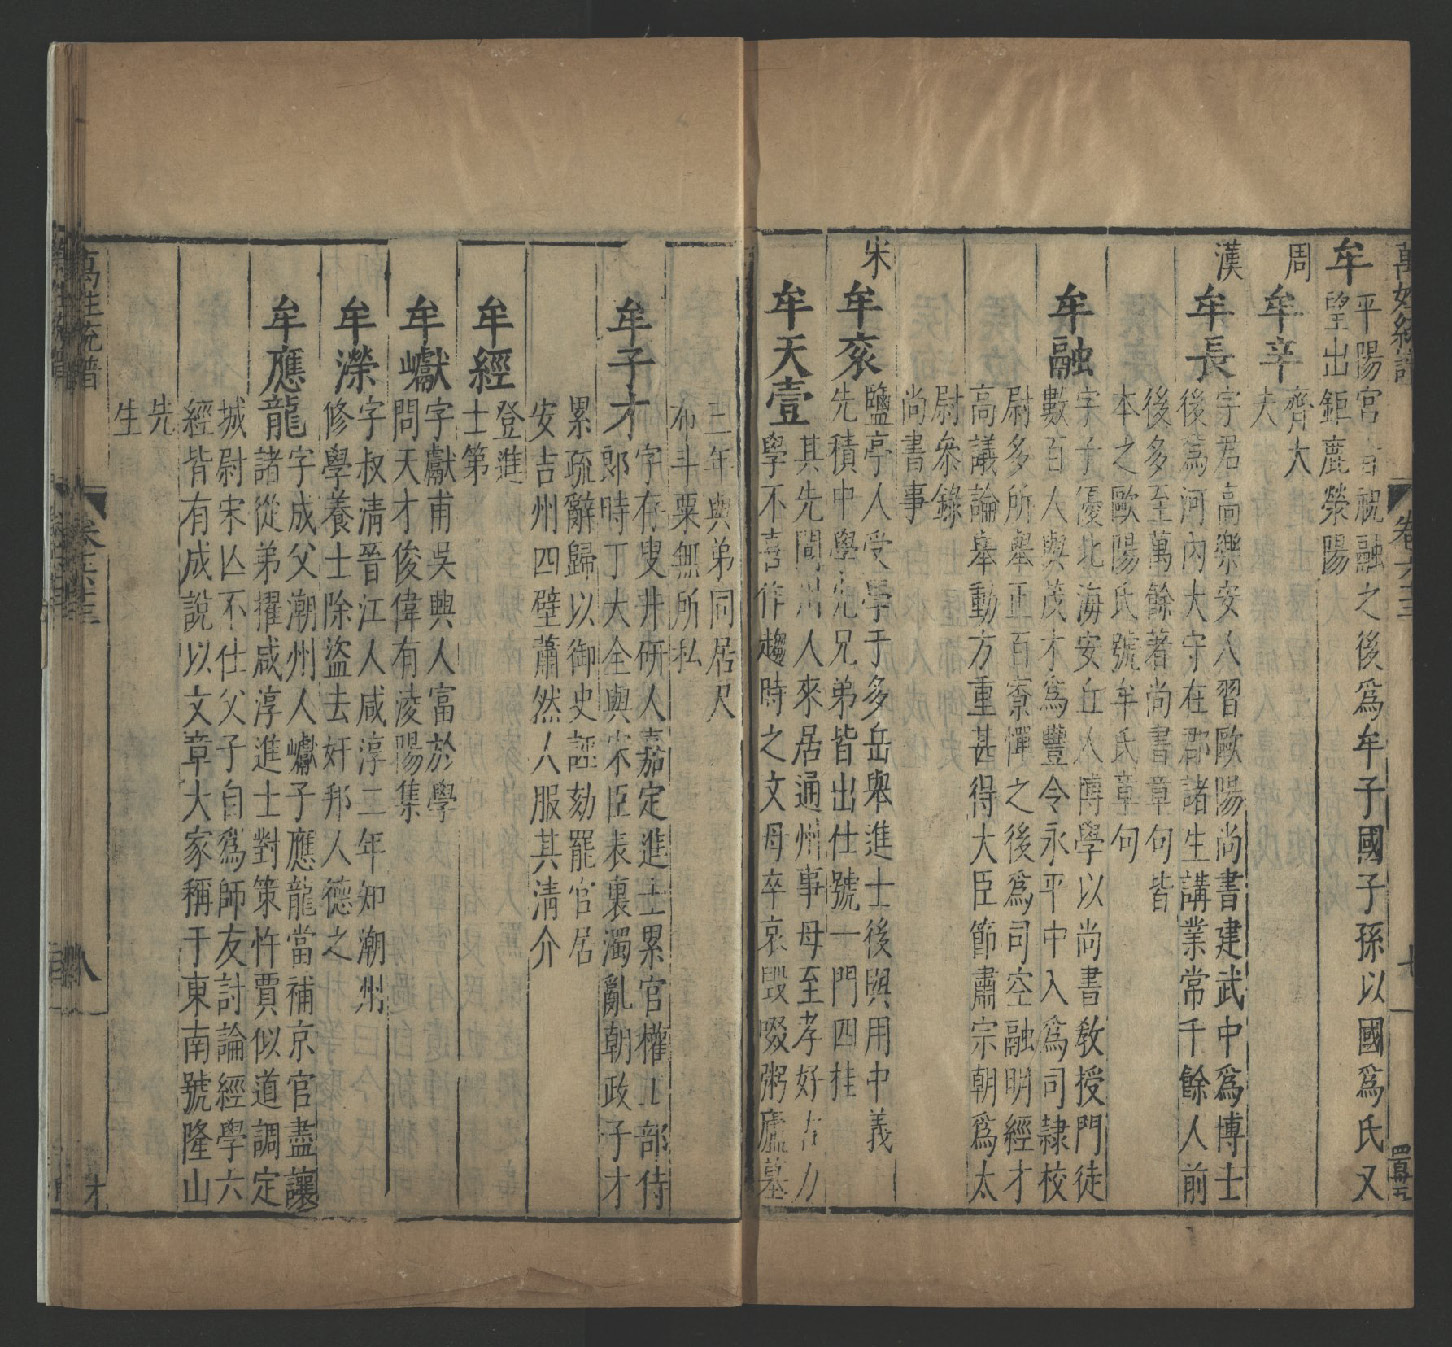 萬姓統譜
卷六十三
牟
平陽宮音祝融之後爲牟子國子孫以國爲氏又
望出鉅鹿滎陽
周
牟辛
齊大
夫
漢
牟長
字君高樂安人習歐陽尚書建武中爲博士
後爲河內大守在郡諸生講業常千餘人前
後多至萬餘著尚書章句皆
本之歐陽氏號牟氏章句
牟融
字子優北海安丘人博學以尚書敎授門徒
數百人舉茂才爲豐令永平中入爲司隷校
尉多所舉正百寮憚之後爲司空融明經才
高議論舉動方重甚得大臣節肅宗朝爲太
尉叅錄
尚書事
宋
牟衮
鹽亭人受學于多岳舉進士後與用中義
先積中學兄兄弟皆出仕號一門四桂
牟天壹
其先閬州人來居通州事母至孝好古力
學不喜作趨時之文母卒哀毀啜粥廬墓
三年與弟同居尺
布斗粟無所私
牟子才
字存叟井研人嘉定進士累官權工部侍
郎時丁大全與宋臣表裏濁亂朝政子才
累疏辭歸以御史誣劾罷官居
安吉州四壁蕭然人服其淸介
牟經
登進
士第
牟巘
字獻甫吳興人富於學
問天才俊偉有淩陽集
牟濚
字叔淸晉江人咸淳三年知潮州
修學養士除盜去奸邦人德之
牟應龍
字成父潮州人巘子應龍當補京官盡讓
諸從弟擢咸淳進士對策忤賈似道調定
城尉宋亾不仕父子自爲師友討論經學六
經皆有成說以文章大家稱于東南號隆山
先
生
萬姓統譜
卷六十三
八